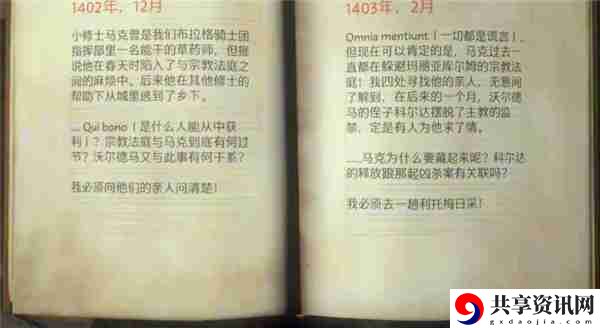 1402年，12月
小修士马克曾是我们布拉格骑士团
指挥部里一名能干的草药师，但据
说他在春天时陷入了与宗教法庭之
间的麻烦中。后来他在其他修士的
帮助下从城里逃到了乡下。
... Qui bono（是什么人能从中获
利）？宗教法庭与马克到底有何过
节？沃尔德马又与此事有何干系？
我必须向他们的亲人问清楚！
1403年，2月
Omnia mentiunt（一切都是谎言）。
但现在可以肯定的是，马克过去一
直都在躲避玛丽亚库尔姆的宗教法
庭！我四处寻找他的亲人，无意间
了解到，在后来的一个月，沃尔德
马的侄子科尔达摆脱了主教的监
禁，定是有人为他求了情。
......马克为什么要藏起来呢？科尔达
的释放跟那起凶杀案有关联吗？
我必须去一趟利托梅日采！
共享资讯网
gxdaojia.com